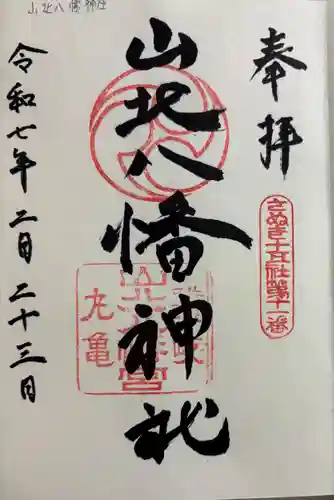 山北八幡神社
奉拝
さぬき十五社第十一番
山北八幡神社
丸亀
令和七年二月二十三日